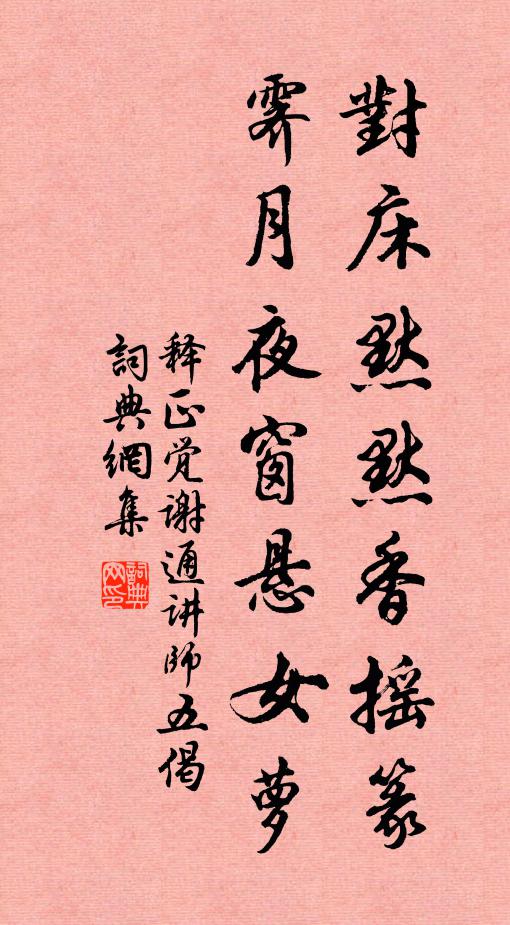 對床默默香摇篆
霽月夜窗悬女萝
释正觉谢通讲师五偈
詞典網集
詞典网印